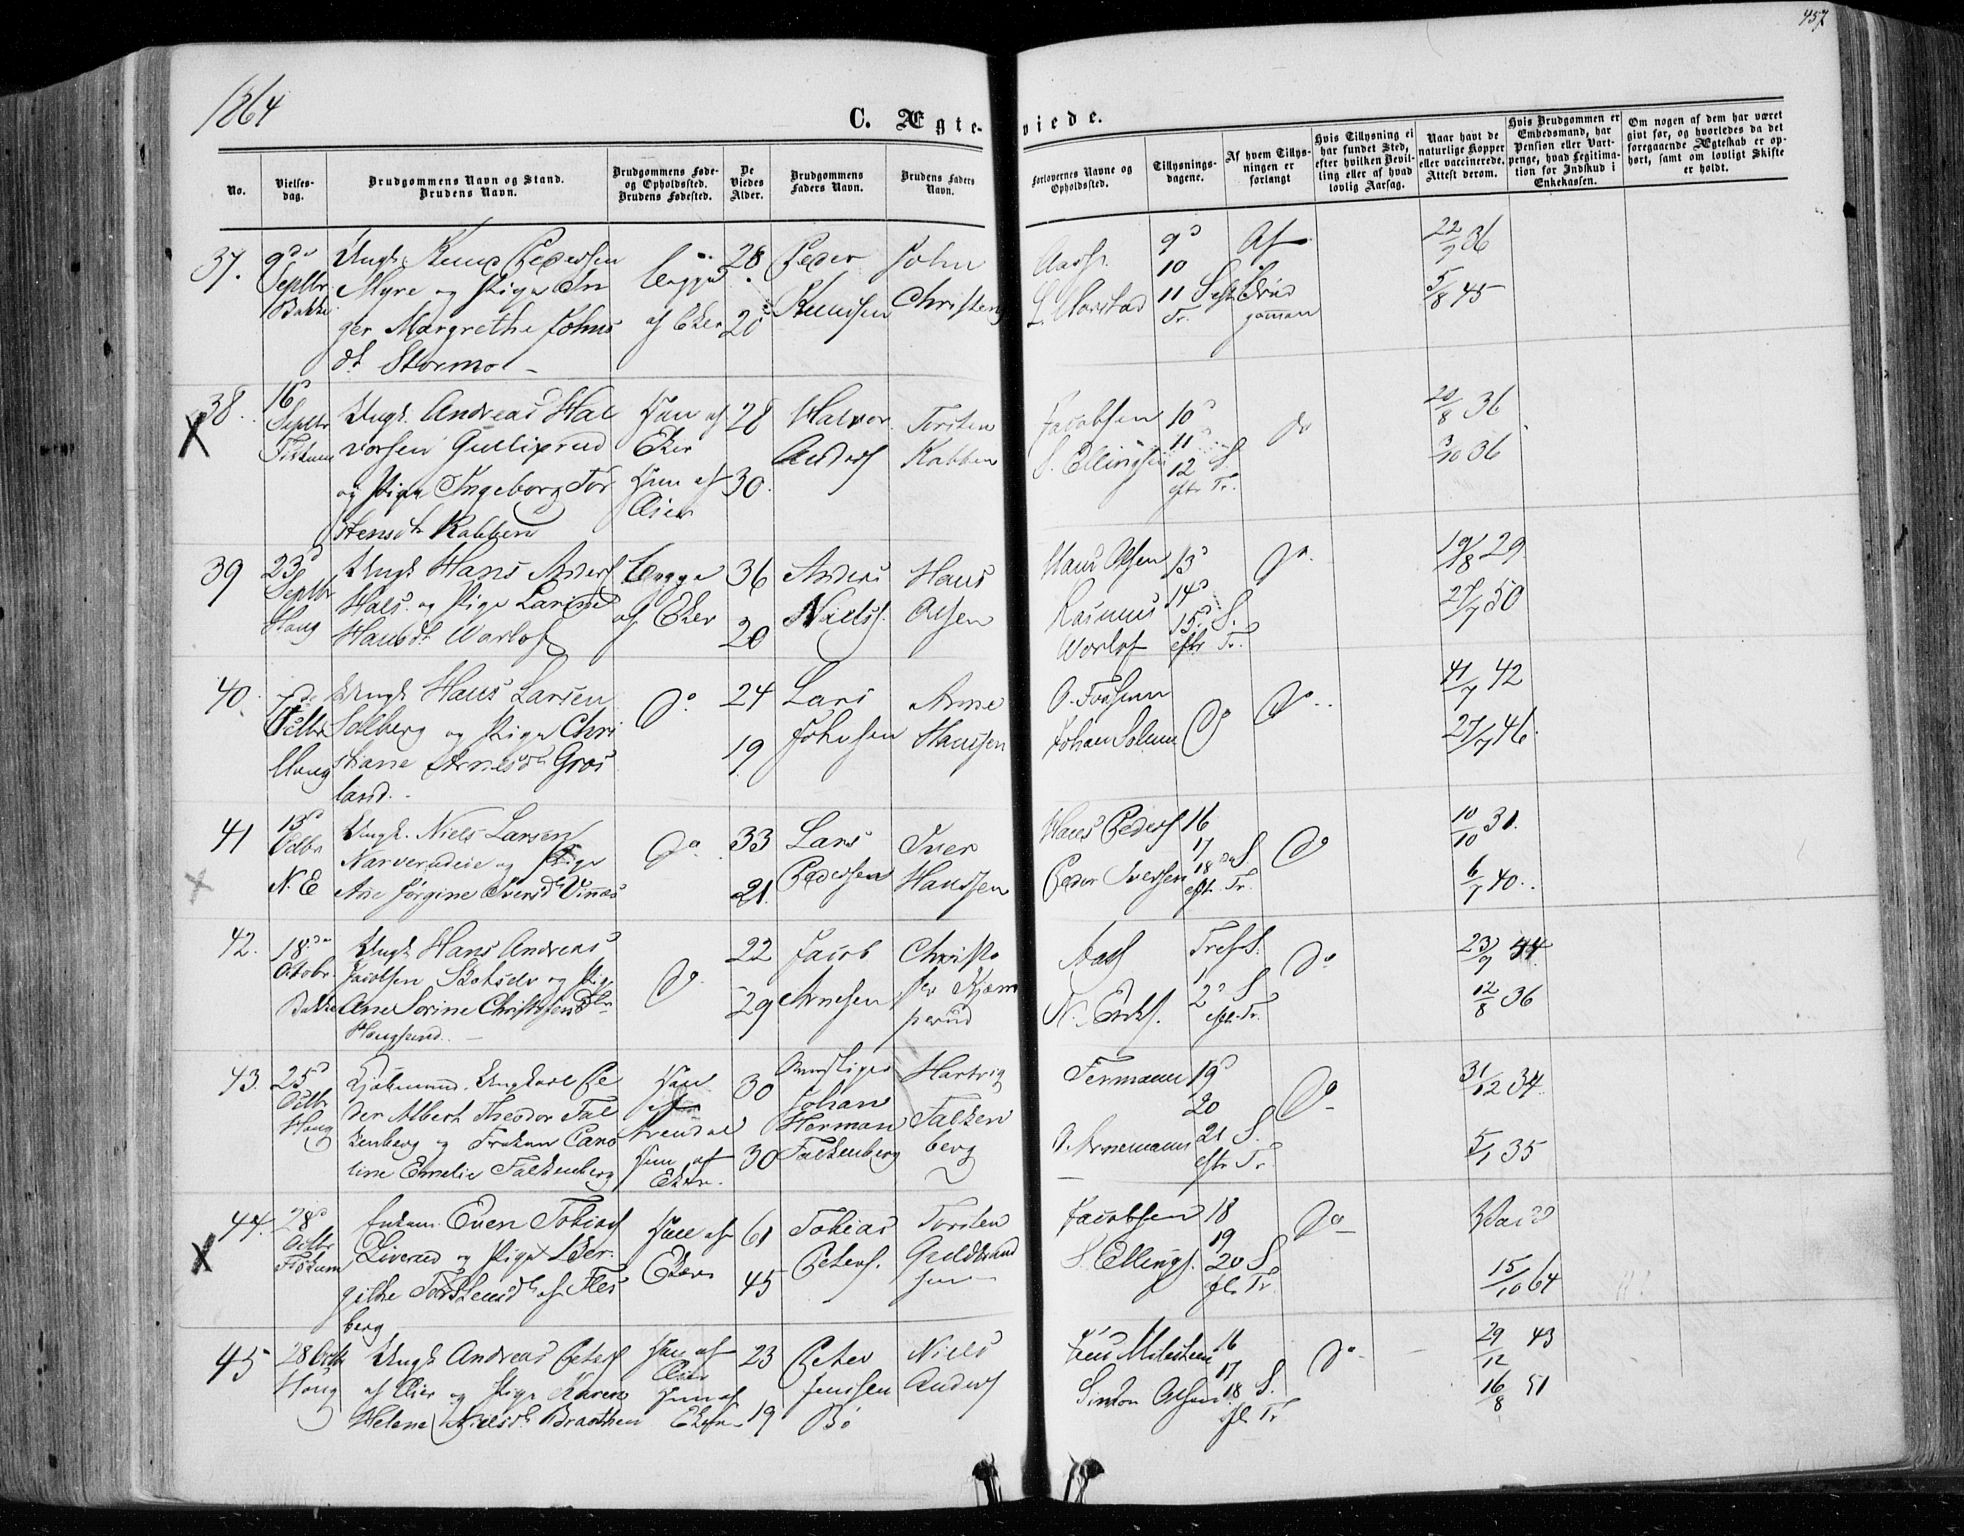 457
1864
C. Ægte-
viede.
No.
Vielses-
dag.
Brudgommens Navn og Stand.
Brudens Navn.
Brudgommens Føde-
og Opholdssted.
Brudens Fødested.
De
Viedes
Alder.
Brudgommens
Faders Navn.
Brudens Faders
Navn.
Forlovernes Navne og
Opholdssted.
Tillysnings-
dagene.
Af hvem Tillys-
ningen er
forlangt
Hvis Tillysning ei
har fundet Sted,
efter hvilken Bevil-
ling eller af hvad
lovlig Aarsag.
Naar havt de
naturlige Kopper
eller vaccinerede.
Attest derom.
Hvis Brudgommen er
Embedsmand, har
Pension eller Vart-
penge, hvad Legitima-
tion for Indskud i
Enkekassen.
Om nogen af dem har været
givt før, og hvorledes da det
foregaaende Ægteskab er op-
hørt, samt om lovligt Skifte
er holdt.
37. 9de Septbr Bakke
Ungk. Knud Pedersen
Myre og Pige In
ger Margrethe Johns
dt Stormo
Begge
af Eker
28
20
Peder
Knudsen
John
Christens
9d
10
11 Sept
Tr.
Brud
gommen
22/7 36
5/8 45
38. 16d Septbr Fiskum
Ungk. Andreas Hal
vorsen Gullixrud
og Pige Ingeborg Tor
stensdt Kabben
Han af
Eker
Hun af
28
30.
Halvor
Anders
Torsten
Kabben
Jacobsen
S. Ellingsen
10d
11
12 S.
eft. Tr.
do
20/8 36
3/10 36
39 23d Septbr Houg
Ungk. Hans Anders
Hals og Pige Larine
Hansdt Varlof
Begge
af Eker
36
20
Anders
Niels.
Hans
Olsen
Hans Olsen
Rasmus
Worlof
13d
14d
15 S.
eftr Tr.
Do
19/8 29
27/7 50
40. 7de Octbr Houg
Ungk. Hans Larsen
Solberg og Pige Chri
stiane Arnesdt Gros
land.
Do
24
19
Lars
Johnsen
Arne
Hansen
O. Fossum
Johan Solum
Do
Do
11/7 42
27/7 46.
41 13d Octbr N.E
Ungk. Niels Larsen
og Pige
Ane Jørgine Iversdt Vinnæs
Do
33
21.
Lars
Pedersen
Iver
Hansen
Hans Peders
Peder Iversen
16
17
18 S.
eft. Tr.
Do
10/10 31.
6/7 40.
42. 18de Octobr Bakke
Ungk. Hans Andreas
Jacobsen Skotselv og Pige
Ane Sorine Christofersdtr
Hougsund.
Do
22
29
Jacob
Arnesen
Christo
fer Kjem
perud
Aas
N. Ericks.
1
2d S
eft. Tr.
Do
23/7 44
12/8 36
43. 25d Octbr Houg
Kjøbmand. Ungkarl Pe
der Albert Theodor Fal
kenberg og Frøken Caro
line Emelie Falkenberg
Han
Arendal
Hun af
Eker.
30
30
Johan
Herman
Falkenberg
Hartvig
Falken
berg
Termann
O. Arnemann
19d
20
21 S.
eftr Tr.
Do
31/12 34.
5/1 35
44. 28d Octbr Fiskum
Enkem. Even Tobias
Liverud og Pige Ber
githe Torstensdt af Fles
berg
Han af
Eker
61
45
Tobias
Peters.
Torsten
Guldbrand
sen
Jacobsen
S. Ellings.
18
19
20 S
eft. Tr.
Do
15/10 64
45 28 Octb Houg
Ungk. Andreas Peters
af Lier og Pige Karen
Helene Nielsdt Braathen
Han af
Lier
Hun af
Eker
23
19
Peter
Jensen
Bø
Niels
Anders
Jens Milesteen
Simon Olsen
16
17
18 S.
eft. Tr
Do
29/12 43
16/8 51